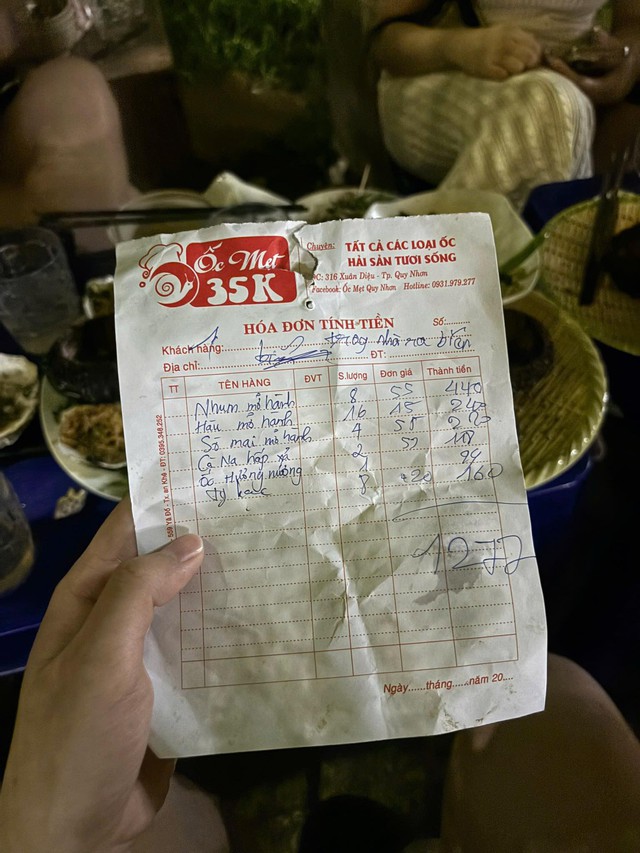 Ốc Mẹt
35K
Chuyên: TẤT CẢ CÁC LOẠI ỐC
HẢI SẢN TƯƠI SỐNG
ĐC: 316 Xuân Diệu - Tp. Quy Nhơn
Facebook: Ốc Mẹt Quy Nhơn Hotline: 0931.979.277
HÓA ĐƠN TÍNH TIỀN
Số:
Khách hàng: 1
Địa chỉ: ĐT:
TT TÊN HÀNG ĐVT S.lượng Đơn giá Thành tiền
Nhum mỡ hành 8 55 440
Hàu mỡ hành 16 15 240
Sò mai mỡ hành 4 55 220
Cà Na hấp xả 2
Ốc Hương nướng 1
8 20 160
1272
Ngày......tháng......năm 20....